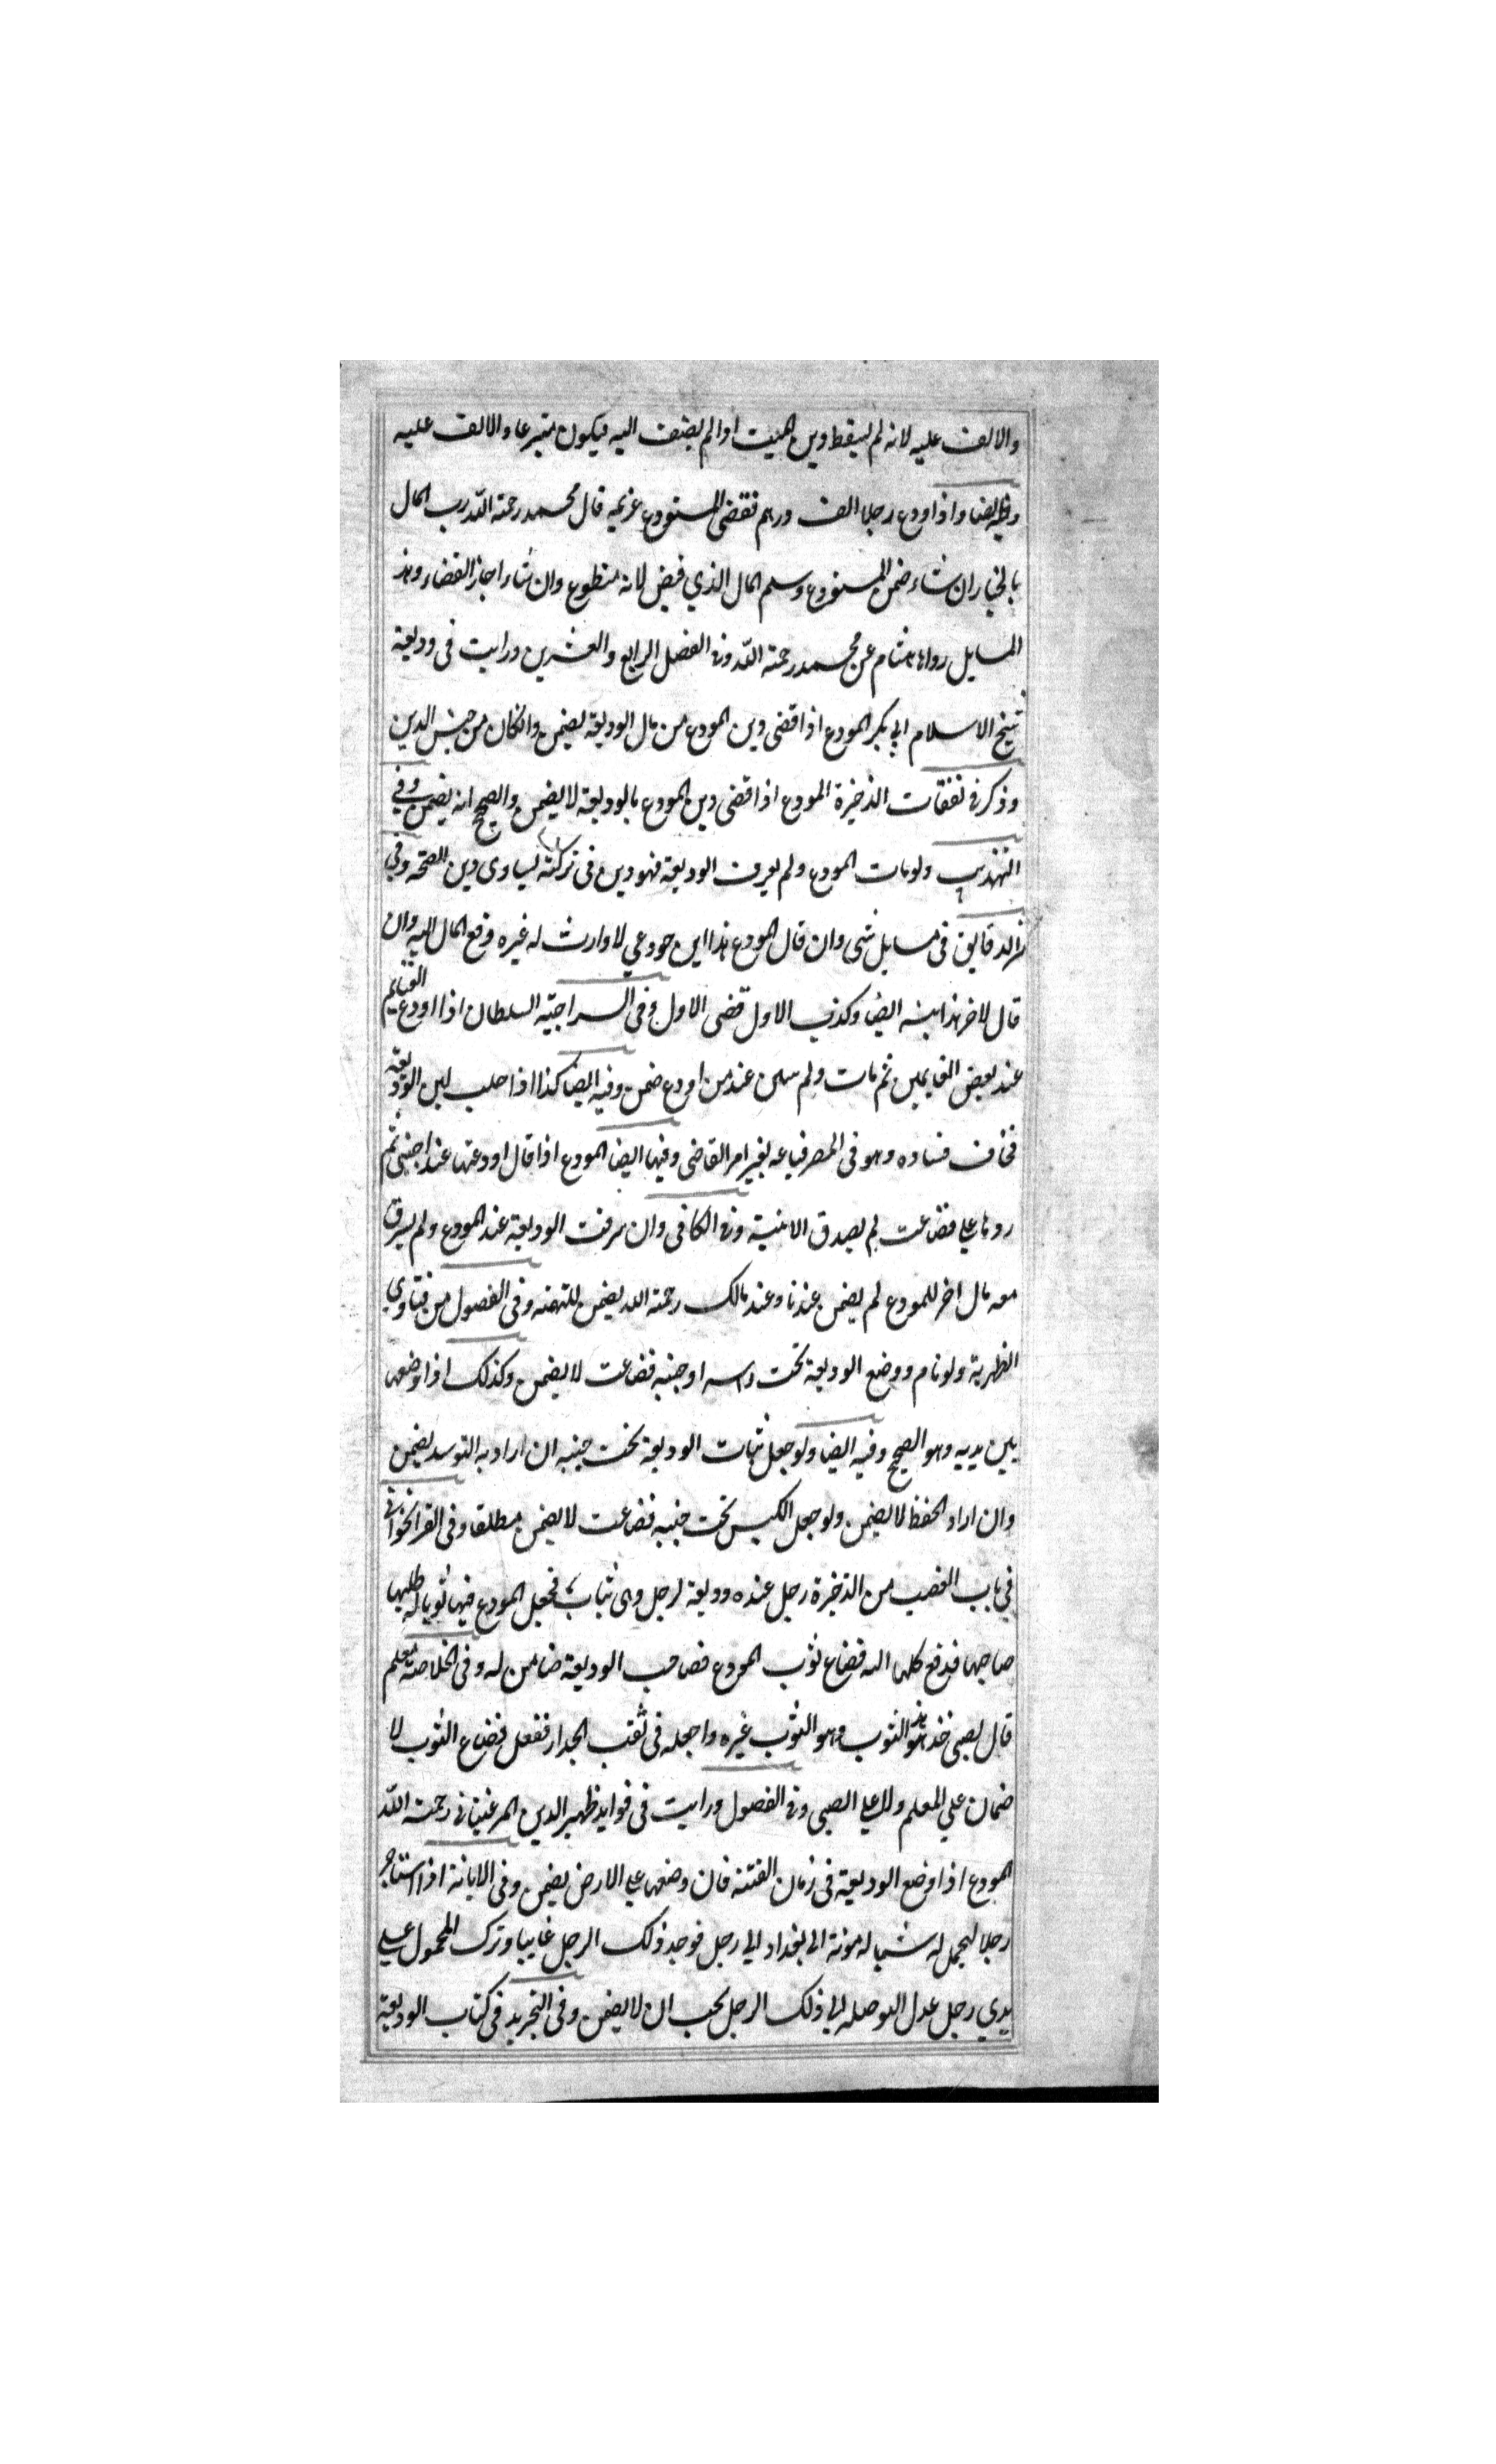 والالف عليه لانه لم يسقط دين الميت اذا لم يضف اليه فيكون متبرعا والالف عليه
وفيه ايضا واذا اودع رجلا الف درهم فقضى المستودع غريمه قال محمد رحمة الله رب المال
بالخيار ان شاء ضمن المستودع وسلم المال الذي قبض لانه متطوع وان شاء اجاز القضاء وهذه
المسايل رواها هشام عن محمد رحمة الله وفى الفصل الرابع والعشرين ورايت فى وديعة
شيخ الاسلام ابي بكر المودع اذا قضى دين المودع من مال الوديعة يضمن وانكان من جنس الدين
وذكر فى نفقات الذخيرة المودع اذا قضى دين المودع بالوديعة لا يضمن والصحيح انه يضمن وفي
التهذيب ولو مات المودع ولم يعرف الوديعة فهو دين فى تركته يساوى دين الصحة وفي
الدقايق فى مسايل شتى وان قال المودع هذا ابن مودعي لا وارث له غيره دفع المال اليه وان
قال لاخر هذا ابنه ايضا وكذب الاول قضى الاول وفى السراجية السلطان اذا اودع الغنايم
عند بعض الغانمين ثم مات ولم يبين عند من اودع ضمن وفيه ايضا كذا اذا حلب لبن الوديعة
فخاف فساده وهو فى المصر فباعه بغير امر القاضى وفيها ايضا المودع اذا قال اودعتها عند اجنبى ثم
ردها علي فضاعت لم يصدق الا ببينة وفى الكافى وان سرقت الوديعة عند المودع ولم يسرق
معه مال اخر للمودع لم يضمن عندنا وعند مالك رحمة الله يضمن للتهمة وفى الفصول من فتاوي
الظهرية ولو نام ووضع الوديعة تحت راسه او جنبه فضاعت لا يضمن وكذلك اذا وضعها
بين يديه وهو الصحيح وفيه ايضا ولو جعل ثياب الوديعة تحت جنبه ان اراد به التوسد يضمن
وان اراد الحفظ لا يضمن ولو جعل الكيس تحت جنبه فضاعت لا يضمن مطلقا وفى القراخوانى
في باب الغصب من الذخيرة رجل عنده وديعة لرجل وهى ثياب فجعل المودع فيها ثوبا له طلبها
صاحبها فدفع كلها اليه فضاع ثوب المودع فصاحب الوديعة ضامن له وفى الخلاصة معلم
قال لصبى خذ هذا الثوب وهو الثوب غيره واجعله فى ثقب الجدار ففعل فضاع الثوب لا
ضمان علي المعلم ولا علي الصبى وفى الفصول ورايت فى فوايد ظهير الدين المرغينانى رحمة الله
المودع اذا وضع الوديعة فى زمان الفتنة فان وضعها علي الارض يضمن وفى الابانة اذا استاجر
رجلا ليحمل له شيا له مونة الى بغداد الي رجل فوجد ذلك الرجل غايبا وترك المحمول علي
يدي رجل عدل ليوصله الي ذلك الرجل يجب ان لا يضمن وفى التجريد فى كتاب الوديعة